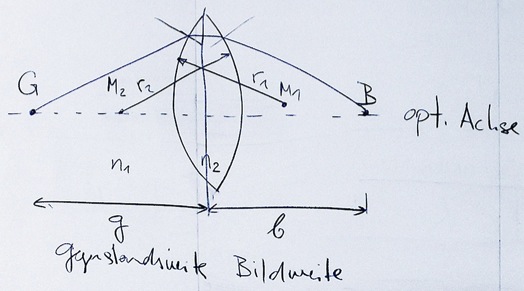 G M₂ r₂ r₁ M₁ B
opt. Achse
n₁ n₂
g b
Gegenstandsweite Bildweite